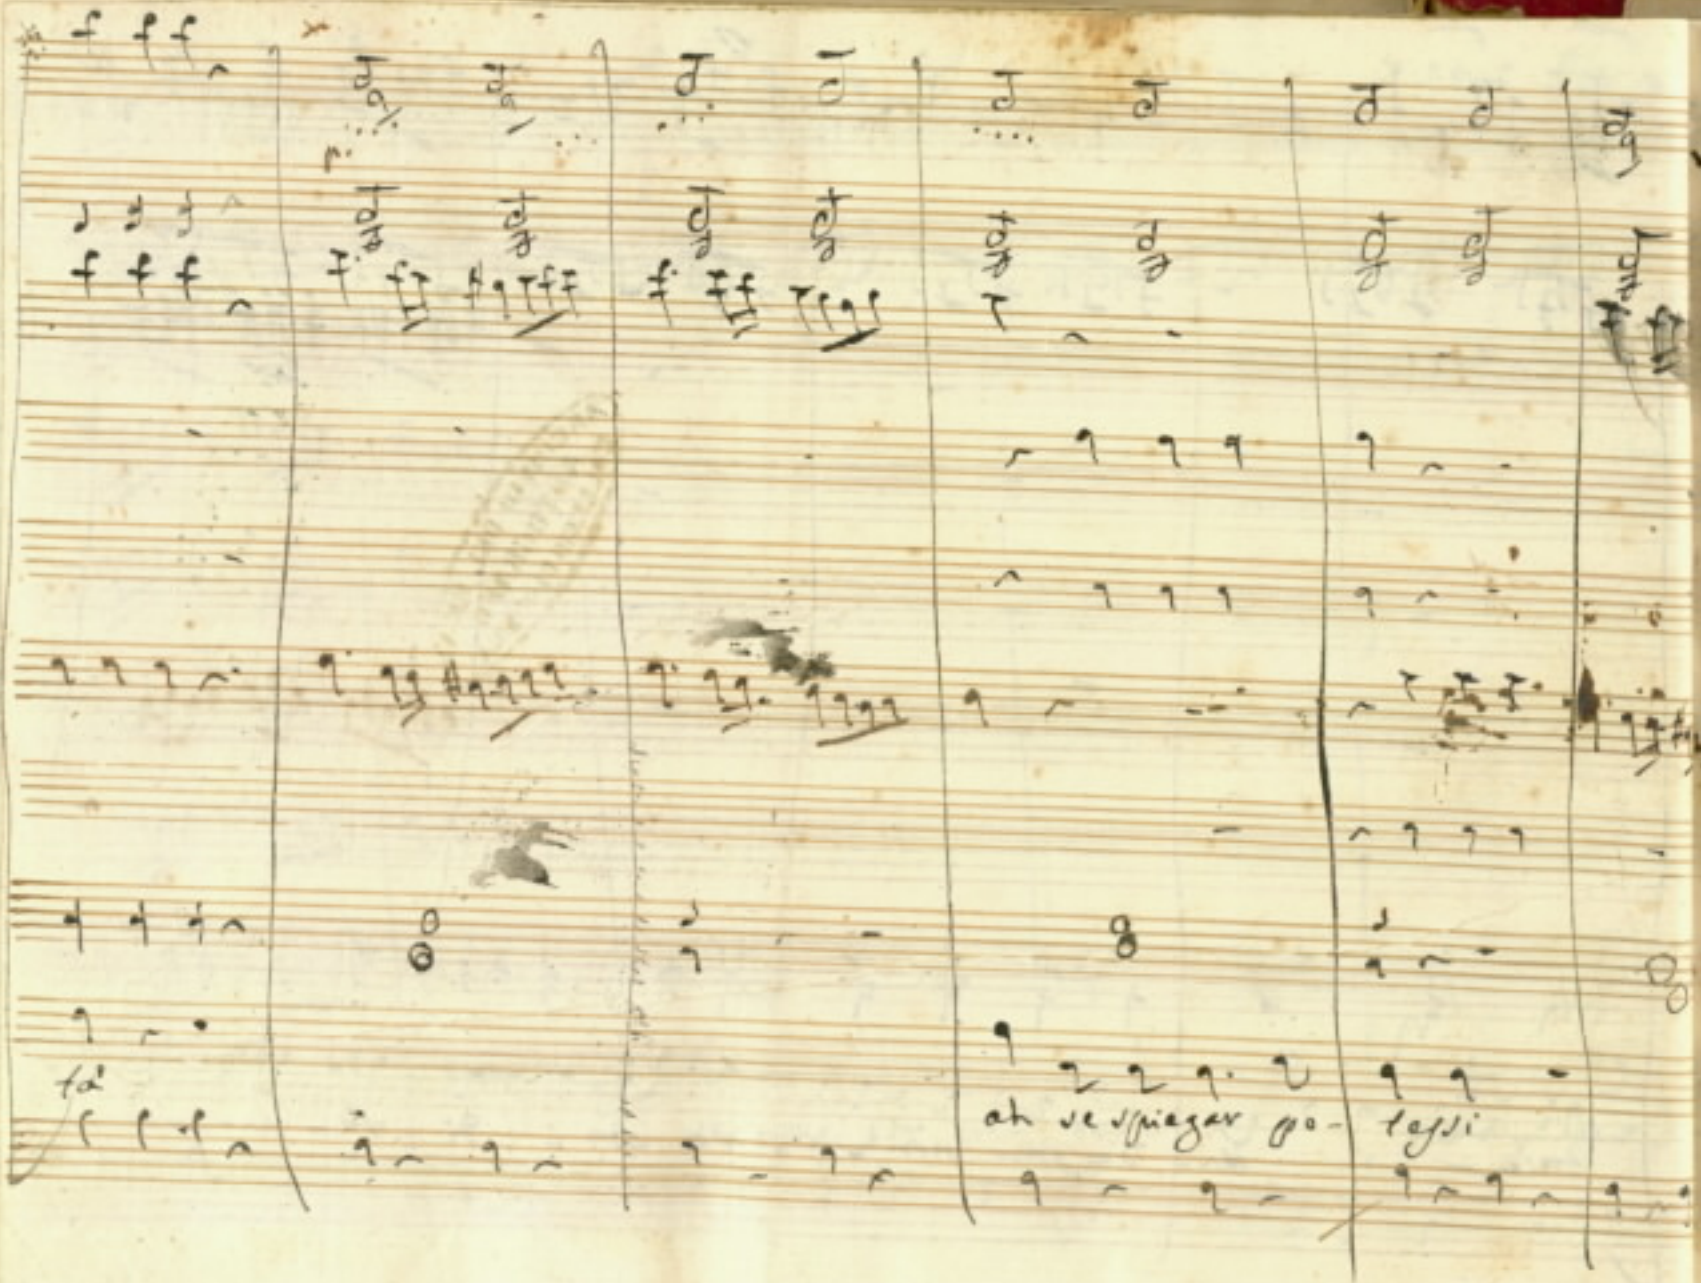 p.
tà
ah se spiegar po- tessi